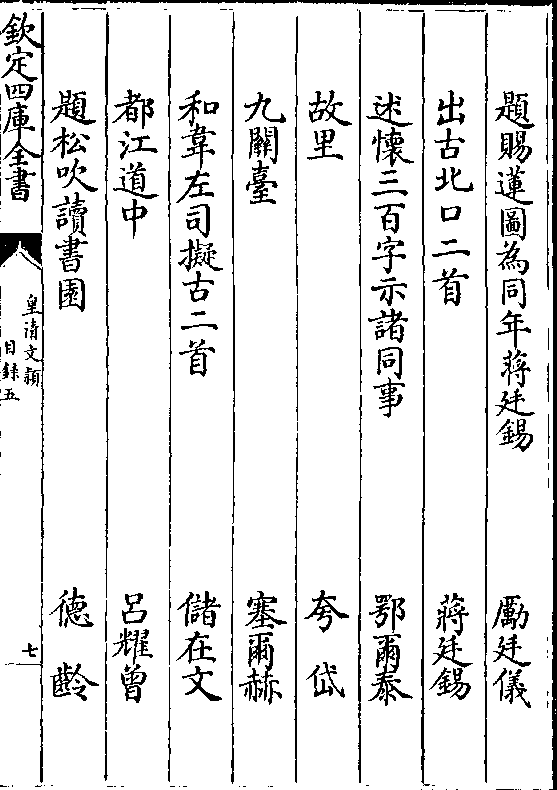 題賜蓮圖為同年蔣廷錫 勵廷儀
出古北口二首 蔣廷錫
述懷三百字示諸同事 鄂爾泰
故里 夸岱
九關臺 塞爾赫
和韋左司擬古二首 儲在文
都江道中 呂耀曾
題松吹讀書園 德齡
欽定四庫全書
皇清文穎
目錄五
七